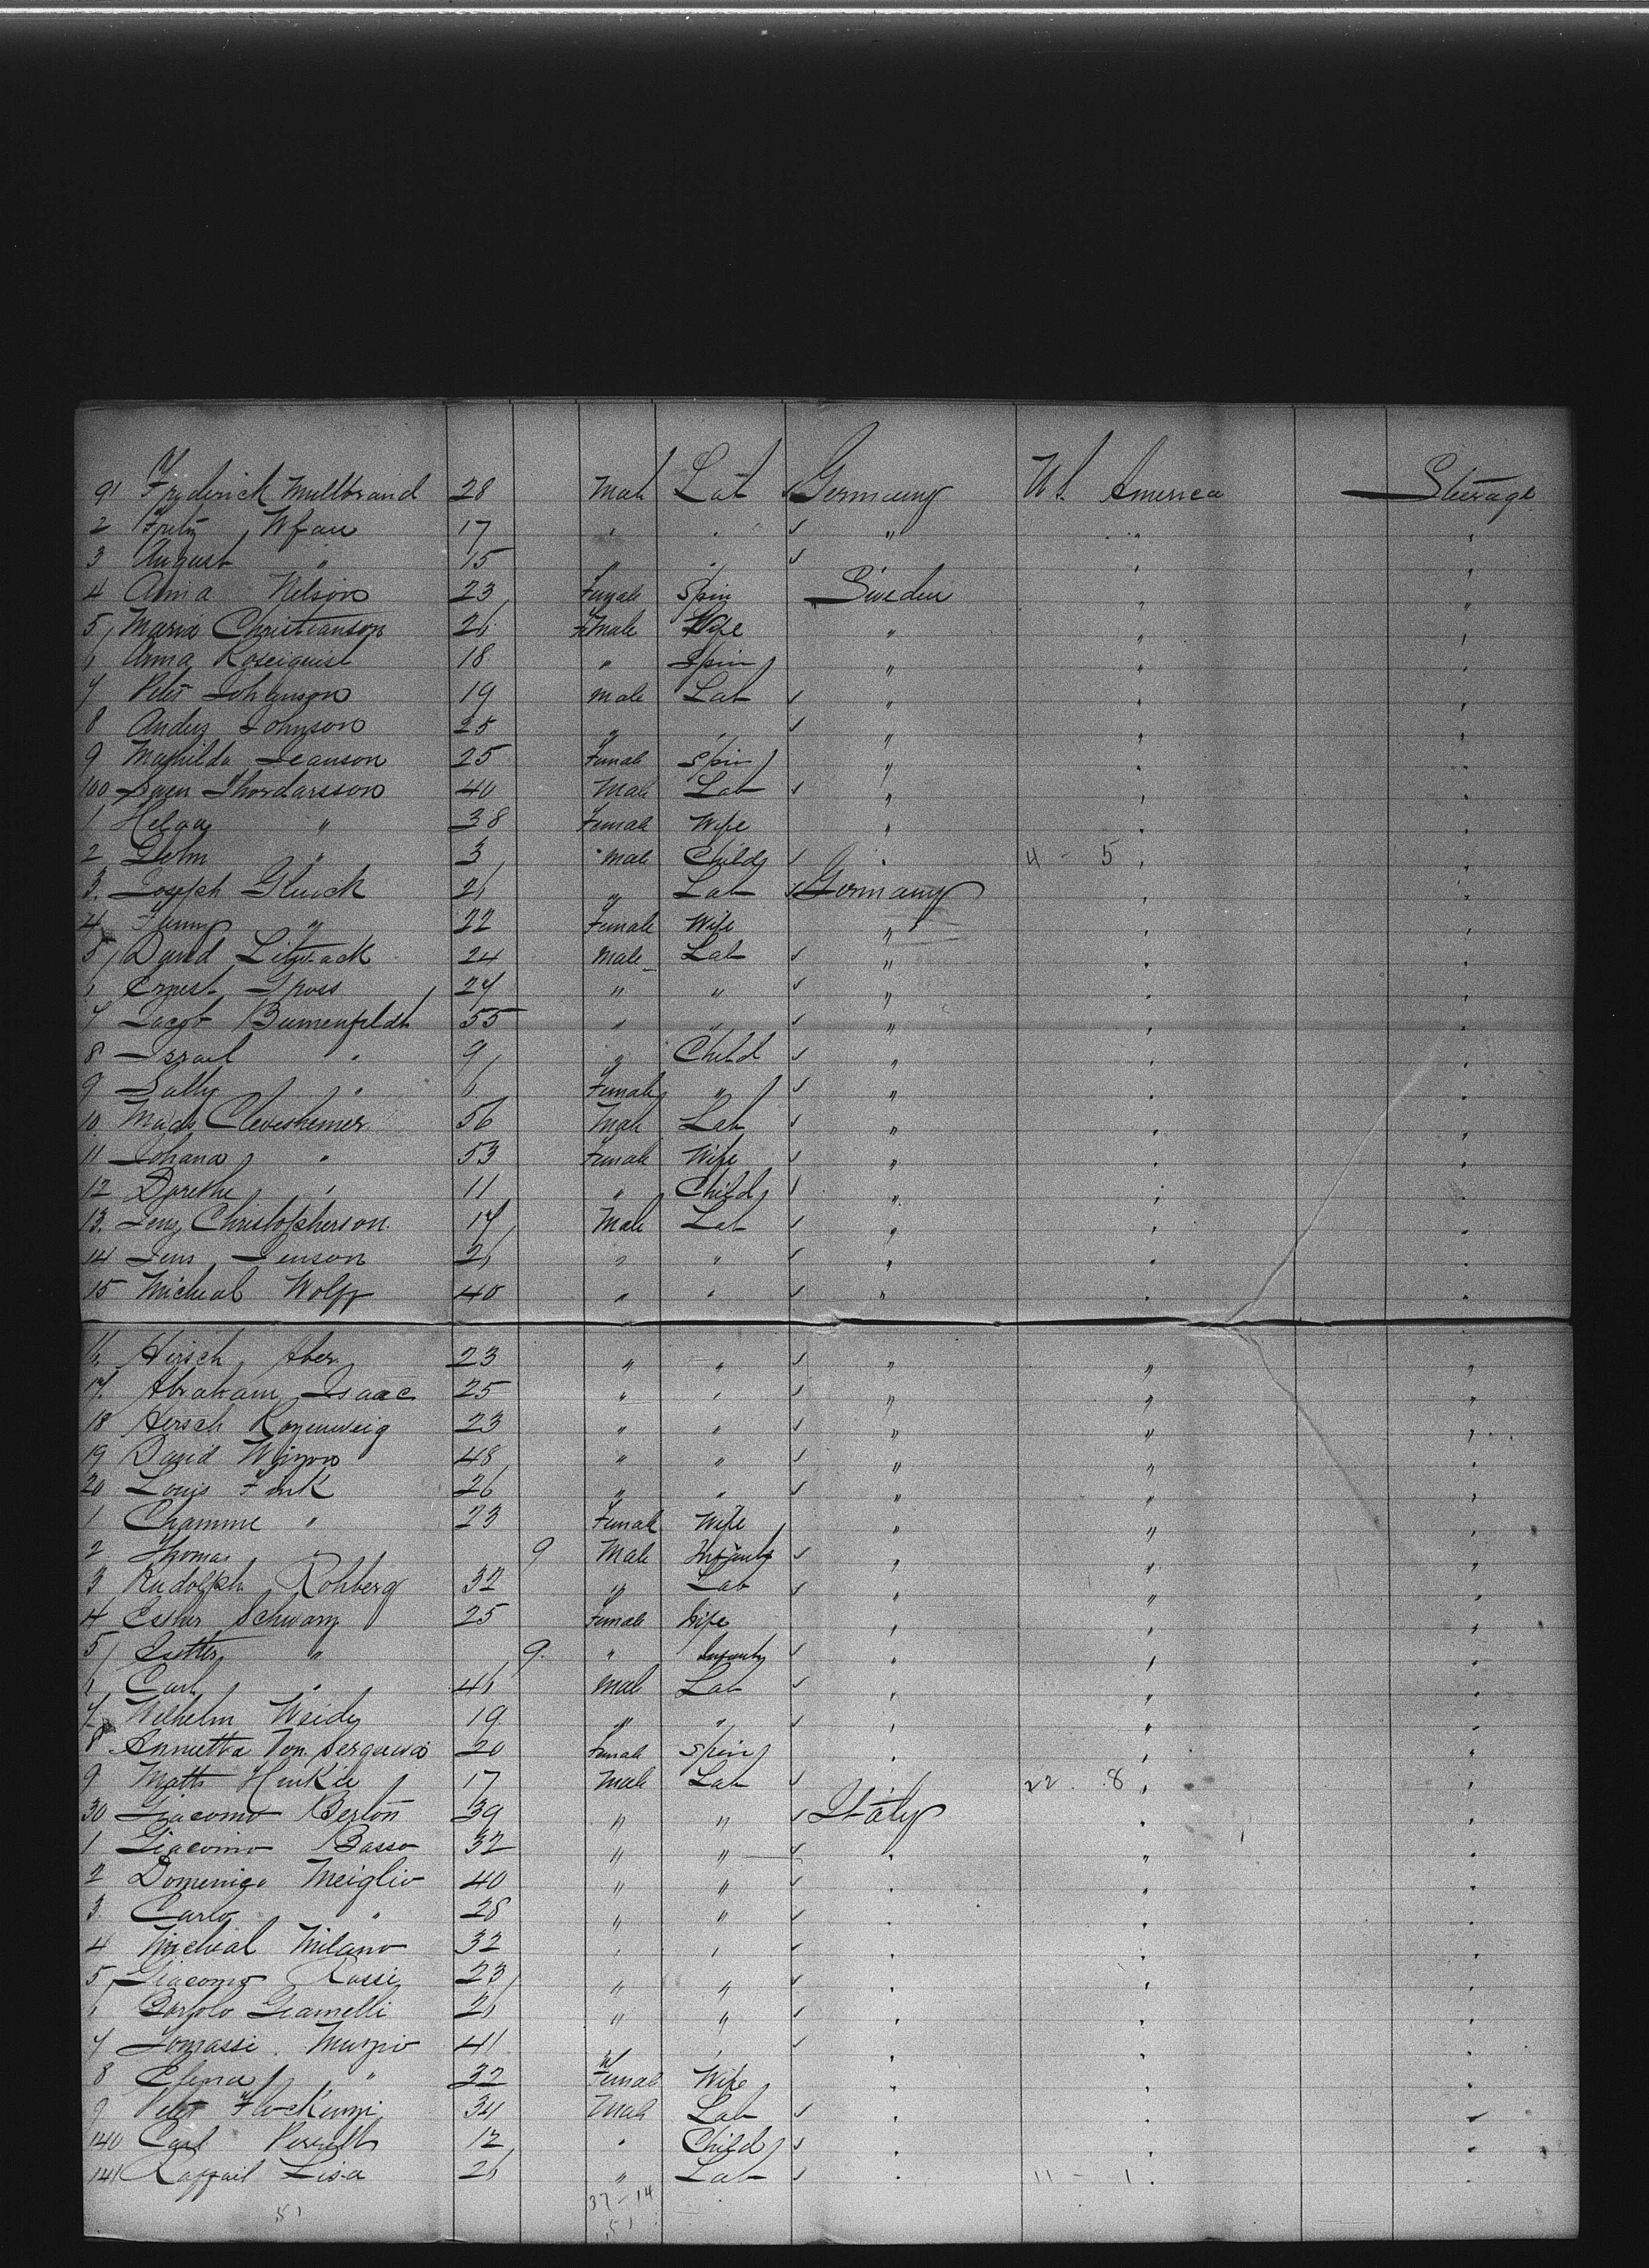 91 Frederick Mullbrand 28 Male Lab Germany U.S. America Steerage
2 Fritz Wfau 17 " " " " "
3 August " 15 " " " "
4 Anna Nelson 23 Female Spin Sweden " "
5 Maria Christianson 26 Female Wife " " "
6 Anna Roseiquist 18 " Spin " " "
7 Peter Johanson 19 Male Lab " " "
8 Andrz Johnson 25 " " " " "
9 Mathilda Seanson 25 Female Spin " " "
100 Swen Thordarsson 40 Male Lab " " "
1 Helga " 38 Female Wife " " "
2 John " 3 Male Child " 4 - 5 " "
3 Joseph Gluick 26 " Lab Germany " "
4 Fanny " 22 Female Wife " " "
5 David Litwack 24 Male Lab " " "
6 Ernest Gross 27 " " " " "
7 Jacob Bumenfeldt 55 " " " " "
8 Israel " 9 " Child " " "
9 Sally " 6 Female " " " "
10 Mads Cleveshemer 56 Male Lab " " "
11 Johana " 53 Female Wife " " "
12 Dorethe " 11 " Child " " "
13 Jens Christopherson 17 Male Lab " " "
14 Jens Jenson 26 " " " " "
15 Micheal Wolff 40 " " " " "
16 Hirsch Aber 23 " " " " "
17 Abraham Isaac 25 " " " " "
18 Hersch Rozenweig 23 " " " " "
19 David 48 " " " " "
20 Louis Fink 26 " " " " "
1 Chamme " 23 Female Wife " " "
2 Thomas " 9 Male Infant " " "
3 Rudolph Rohberg 32 " Lab " " "
4 Esther Schwarz 25 Female Wife " " "
5 " 9 " Infant " " "
6 Carl " 46 Male Lab " " "
7 Wilhelm Weidy 19 " " " " "
8 Annetta Von 20 Female Spin " " "
9 Matts Hinkle 17 Male Lab " 22 8 " "
30 Giacomo Berton 39 " " Italy " "
1 Giacomo Basso 32 " " " " "
2 Domenico Meiglio 40 " " " " "
3 Carlo " 28 " " " " "
4 Micheal Milano 32 " " " " "
5 Giacomo Rossi 23 " " " " "
6 Bortolo Giamelli 26 " " " " "
7 Tomassi Murzio 41 " " " "
8 Elena " 22 Female Wife " " "
9 Peter 34 Male Lab " " "
140 Carl Perrelli 12 " Child " " "
141 Raffail Lisa 26 " Lab " 11 - 1 "
37 - 14
51 51